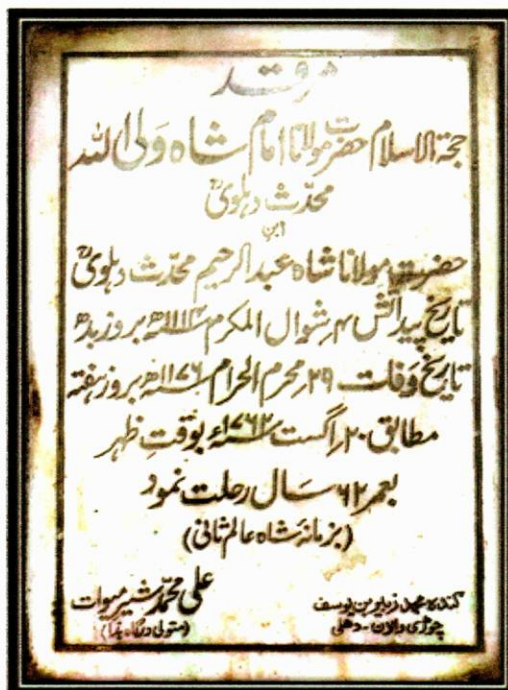 مرقد
حجۃ الاسلام حضرت مولانا امام شاہ ولی اللہ
محدّث دہلویؒ
ابن
حضرت مولانا شاہ عبدالرحیم محدّث دہلویؒ
تاریخ پیدائش ۴؍شوال المکرم ۱۱۱۴ھ بروز بدھ
تاریخ وفات ۲۹؍محرم الحرام ۱۱۷۶ھ بروز ہفتہ
مطابق ۲۰؍اگست ۱۷۶۲ء بوقتِ ظہر
بعمر ۶۲ سال رحلت نمود
(بزمانہ شاہ عالم ثانی)
علی محمّد شیر میوات
(متولی درگاہ ہٰذا)
کندہ محمد زبیر بن یوسف
چوڑی والان - دھلی